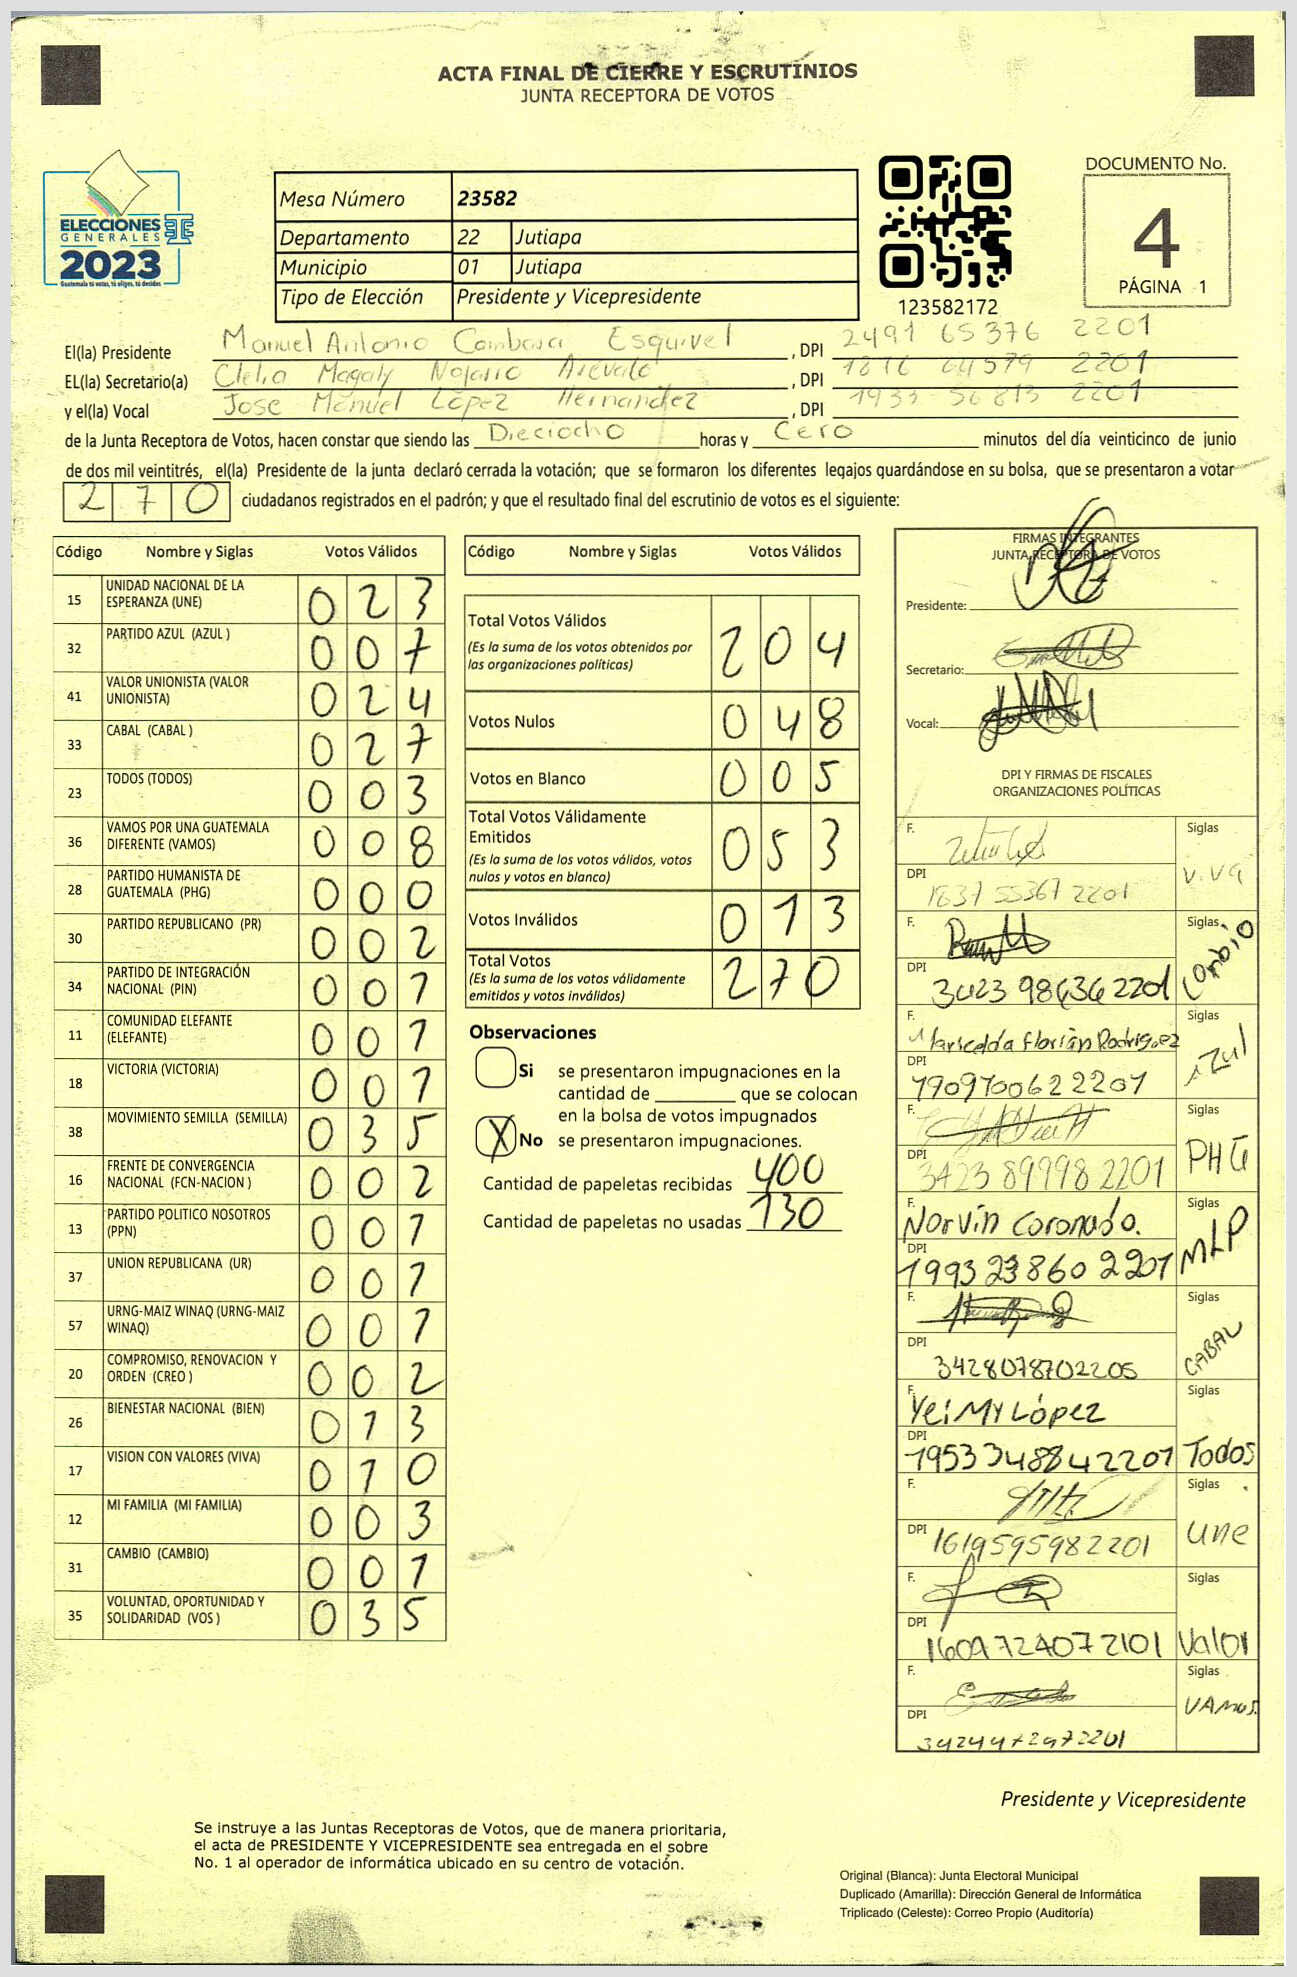 ACTA FINAL DE CIERRE Y ESCRUTINIOS
JUNTA RECEPTORA DE VOTOS
DOCUMENTO No.
4
PÁGINA 1
ELECCIONES
GENERALES
2023
Guatemala tú votas, tú eliges, tú decides
Mesa Número 23582
Departamento 22 Jutiapa
Municipio 01 Jutiapa
Tipo de Elección Presidente y Vicepresidente
123582172
El(la) Presidente Manuel Antonio Esquivel , DPI 2491 65376 2201
EL(la) Secretario(a) Clelia Magaly Najarro Arévalo , DPI 1876 04579 2201
y el(la) Vocal Jose Manuel López Hernandez , DPI 1933 56813 2201
de la Junta Receptora de Votos, hacen constar que siendo las Dieciocho horas y Cero minutos del día veinticinco de junio
de dos mil veintitrés, el(la) Presidente de la junta declaró cerrada la votación; que se formaron los diferentes legajos guardándose en su bolsa, que se presentaron a votar
270 ciudadanos registrados en el padrón; y que el resultado final del escrutinio de votos es el siguiente:
Código Nombre y Siglas Votos Válidos
15 UNIDAD NACIONAL DE LA ESPERANZA (UNE) 023
32 PARTIDO AZUL (AZUL ) 007
41 VALOR UNIONISTA (VALOR UNIONISTA) 024
33 CABAL (CABAL ) 027
23 TODOS (TODOS) 003
36 VAMOS POR UNA GUATEMALA DIFERENTE (VAMOS) 008
28 PARTIDO HUMANISTA DE GUATEMALA (PHG) 000
30 PARTIDO REPUBLICANO (PR) 002
34 PARTIDO DE INTEGRACIÓN NACIONAL (PIN) 001
11 COMUNIDAD ELEFANTE (ELEFANTE) 001
18 VICTORIA (VICTORIA) 001
38 MOVIMIENTO SEMILLA (SEMILLA) 035
16 FRENTE DE CONVERGENCIA NACIONAL (FCN-NACION ) 002
13 PARTIDO POLITICO NOSOTROS (PPN) 001
37 UNION REPUBLICANA (UR) 001
57 URNG-MAIZ WINAQ (URNG-MAIZ WINAQ) 001
20 COMPROMISO, RENOVACION Y ORDEN (CREO ) 002
26 BIENESTAR NACIONAL (BIEN) 013
17 VISION CON VALORES (VIVA) 010
12 MI FAMILIA (MI FAMILIA) 003
31 CAMBIO (CAMBIO) 001
35 VOLUNTAD, OPORTUNIDAD Y SOLIDARIDAD (VOS ) 035
Código Nombre y Siglas Votos Válidos
Total Votos Válidos 204
(Es la suma de los votos obtenidos por
las organizaciones políticas)
Votos Nulos 048
Votos en Blanco 005
Total Votos Válidamente
Emitidos 053
(Es la suma de los votos válidos, votos
nulos y votos en blanco)
Votos Inválidos 013
Total Votos 270
(Es la suma de los votos válidamente
emitidos y votos inválidos)
Observaciones
Si se presentaron impugnaciones en la
cantidad de ________ que se colocan
en la bolsa de votos impugnados
X No se presentaron impugnaciones.
Cantidad de papeletas recibidas 400
Cantidad de papeletas no usadas 130
FIRMAS INTEGRANTES
JUNTA RECEPTORA DE VOTOS
Presidente:
Secretario:
Vocal:
DPI Y FIRMAS DE FISCALES
ORGANIZACIONES POLÍTICAS
F. Siglas
DPI 1837 55367 2201
F. Siglas Cambio
DPI 3423 98636 2201
F. Maricelda Florián Rodriguez Siglas Azul
DPI 1909700622201
F. Siglas PHG
DPI 3423 89998 2201
F. Norvin Coronado. Siglas MLP
DPI 1993 23860 2201
F. Siglas CABAL
DPI 3428078702205
F. YeiMY López Siglas Todos
DPI 1953348842201
F. Siglas une
DPI 1619595982201
F. Siglas Valor
DPI 1609724072101
F. Siglas VAMOS.
DPI 3424472972201
Presidente y Vicepresidente
Se instruye a las Juntas Receptoras de Votos, que de manera prioritaria,
el acta de PRESIDENTE Y VICEPRESIDENTE sea entregada en el sobre
No. 1 al operador de informática ubicado en su centro de votación.
Original (Blanca): Junta Electoral Municipal
Duplicado (Amarilla): Dirección General de Informática
Triplicado (Celeste): Correo Propio (Auditoría)